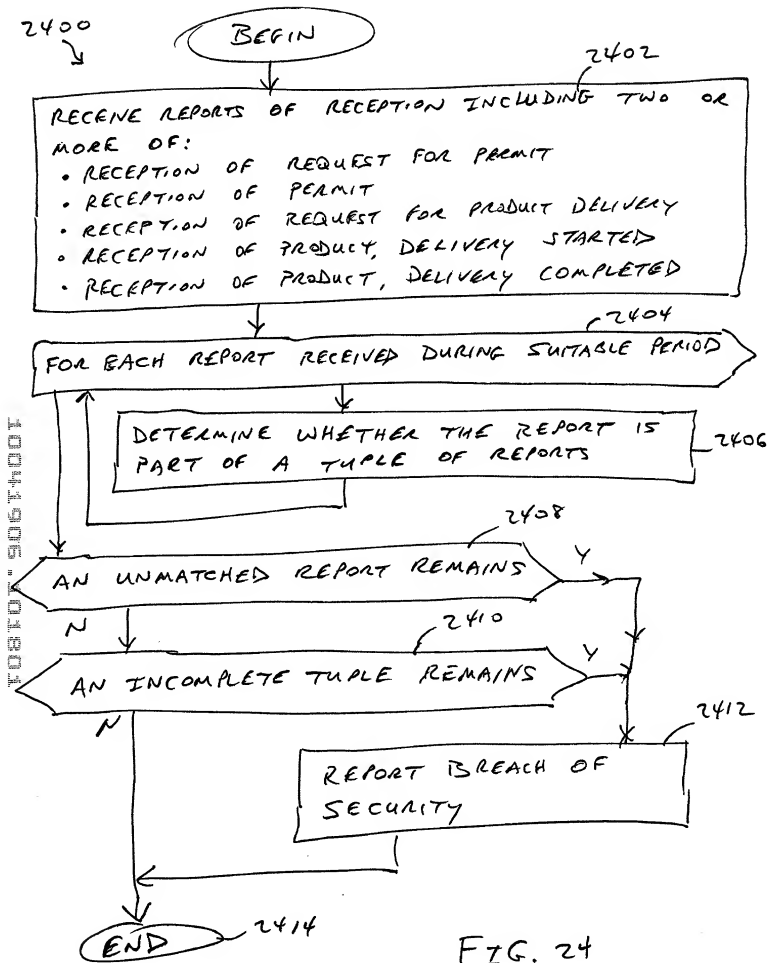 2400
BEGIN
2402
RECEIVE REPORTS OF RECEPTION INCLUDING TWO OR
MORE OF:
• RECEPTION OF REQUEST FOR PERMIT
• RECEPTION OF PERMIT
• RECEPTION OF REQUEST FOR PRODUCT DELIVERY
• RECEPTION OF PRODUCT, DELIVERY STARTED
• RECEPTION OF PRODUCT, DELIVERY COMPLETED
2404
FOR EACH REPORT RECEIVED DURING SUITABLE PERIOD
DETERMINE WHETHER THE REPORT IS
PART OF A TUPLE OF REPORTS
2406
2408
AN UNMATCHED REPORT REMAINS
Y
N
2410
AN INCOMPLETE TUPLE REMAINS
Y
N
2412
REPORT BREACH OF
SECURITY
END
2414
FIG. 24
10041906.101801